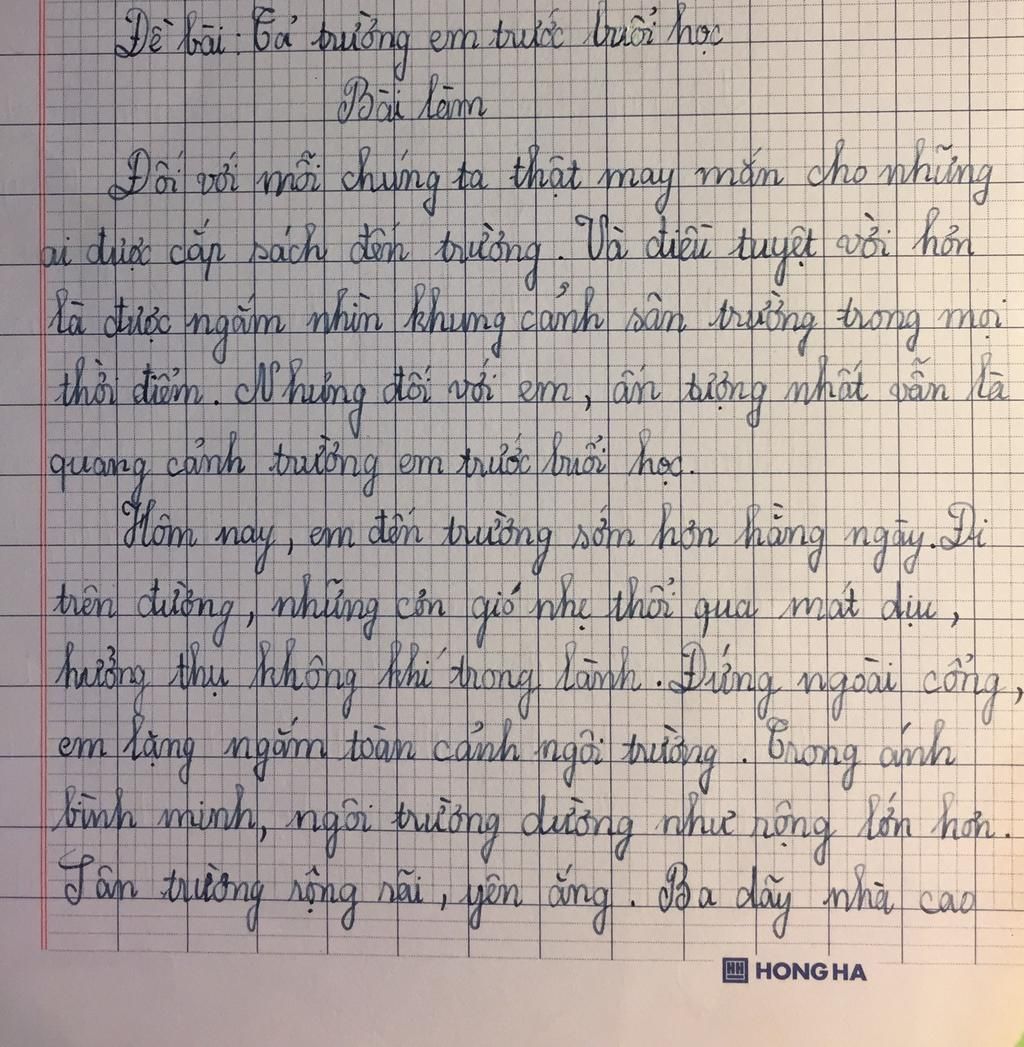 Đề bài: Tả trường em trước buổi học
Bài làm
Đối với mỗi chúng ta thật may mắn cho những
ai được cắp sách đến trường. Và điều tuyệt vời hơn
là được ngắm nhìn khung cảnh sân trường trong mọi
thời điểm. Nhưng đối với em, ấn tượng nhất vẫn là
quang cảnh trường em trước buổi học.
Hôm nay, em đến trường sớm hơn hằng ngày. Đi
trên đường, những cơn gió nhẹ thổi qua mát dịu,
hưởng thụ không khí trong lành. Đứng ngoài cổng,
em lặng ngắm toàn cảnh ngôi trường. Trong ánh
bình minh, ngôi trường dường như rộng lớn hơn.
Sân trường rộng rãi, yên ắng. Ba dãy nhà cao
HH HONG HA